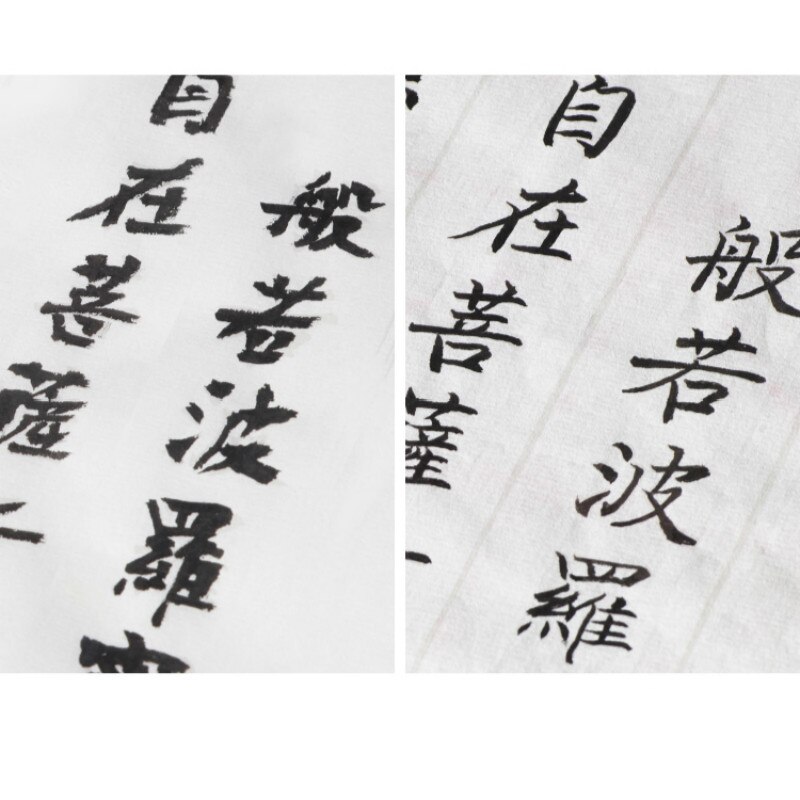 般若波羅
自在菩薩
般若波羅
自在菩薩